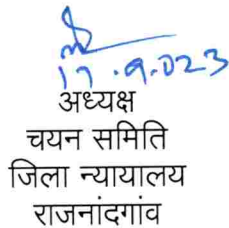 17.9.023
अध्यक्ष
चयन समिति
जिला न्यायालय
राजनांदगांव